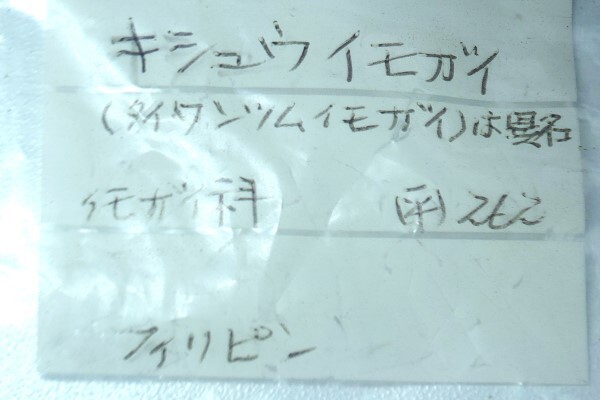 キシュウイモガイ
(タイワンツムイモガイ)は異名
イモガイ科
フィリピン